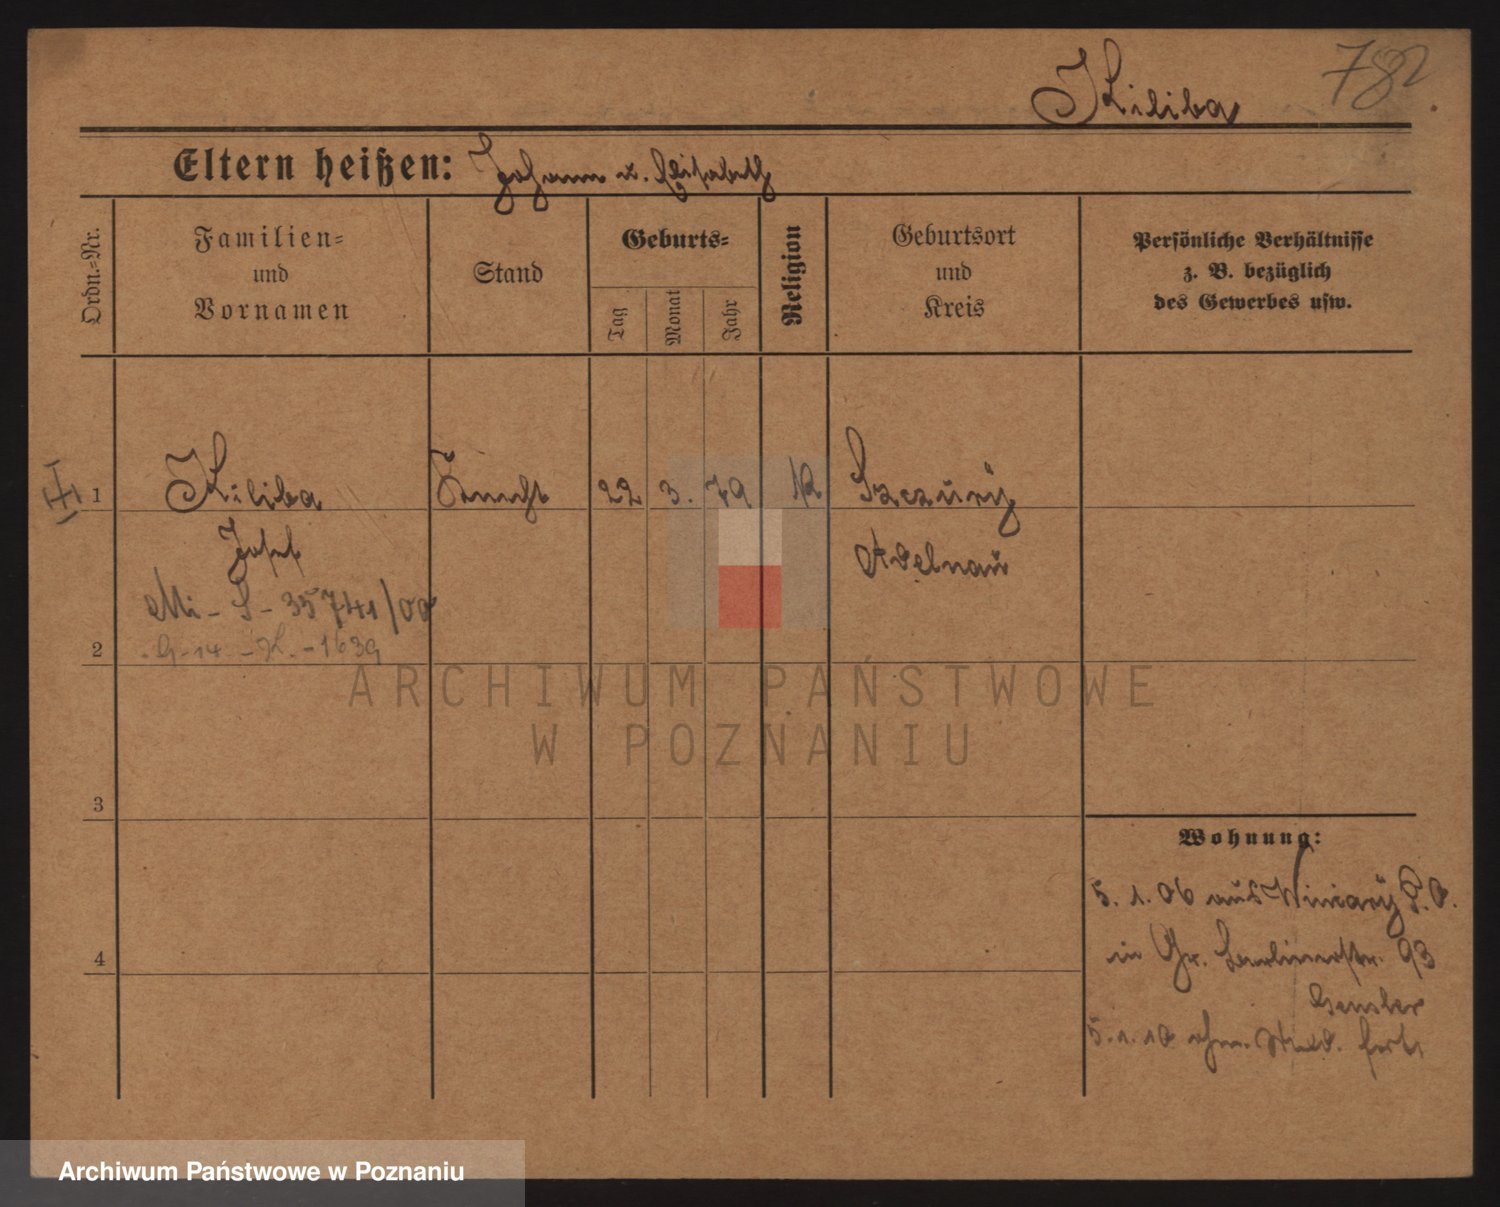 Kiliba 782
Eltern heißen: Johann u. Elisabeth
Ordn.-Nr.
Familien-
und
Vornamen
Stand
Geburts-
Tag
Monat
Jahr
Religion
Geburtsort
und
Kreis
Persönliche Verhältnisse
z. B. bezüglich
des Gewerbes usw.
1 Kiliba Knecht 22 3. 79 K Szczury
Josef Adelnau
Mi - S - 35741/00
2 G-14 - K. - 1639
3
4
Wohnung:
5. 1. 06 aus Winiary P. O.
in Gr. Berlinerstr. 93
5. 1. 10 ohne Meld. fort
ARCHIWUM PAŃSTWOWE
W POZNANIU
Archiwum Państwowe w Poznaniu